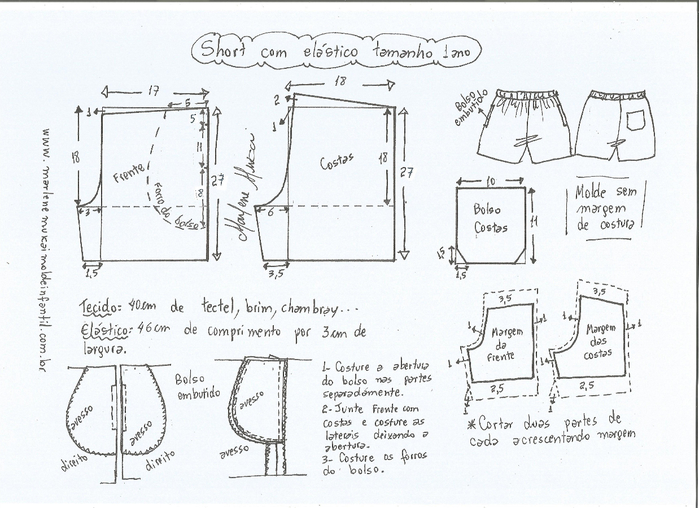 Short com elástico tamanho 1ano
17
5
1
5
11
8
18
27
Frente
Forro do bolso
3
1,5
Marlene Mukai
18
2
1
Costas
18
27
6
3,5
Bolso
embutido
10
Bolso
Costas
11
1,5
1,5
Molde sem
margem
de costura
www.marlenemukaimoldeinfantil.com.br
Tecido: 40cm de tectel, brim, chambray...
Elástico: 46cm de comprimento por 3cm de
largura.
Bolso
embutido
avesso
avesso
direito
direito
avesso
avesso
1- Costure a abertura
do bolso nas partes
separadamente.
2- Junte Frente com
costas e costure as
laterais deixando a
abertura.
3- Costure os forros
do bolso.
3,5
1
1
Margem
da
Frente
1
2,5
1
3,5
1
1
Margem
das
costas
1
2,5
1
*Cortar duas partes de
cada acrescentando margem